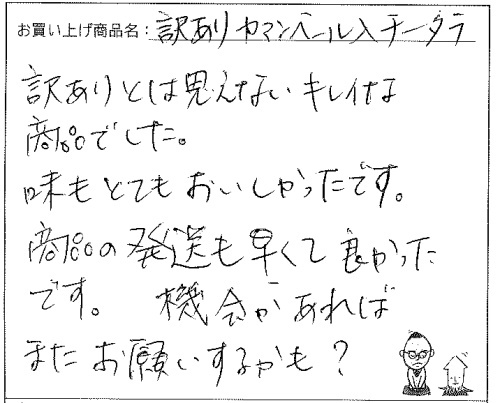 お買い上げ商品名：訳ありカマンベール入チータラ
訳ありとは思えないキレイな
商品でした。
味もとてもおいしかったです。
商品の発送も早くて良かった
です。 機会があれば
またお願いするかも？